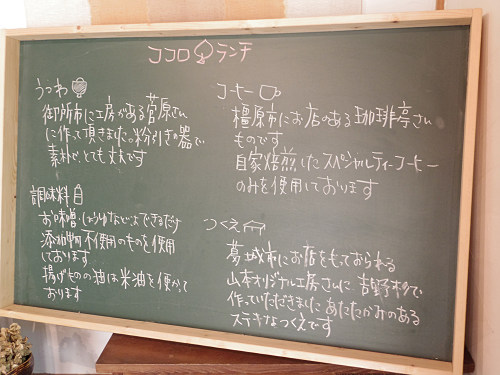 ココロ ランチ
うつわ
御所市に工房がある菅原さん
に作って頂きました。粉引きの器で
素朴で、とても丈夫です
調味料
お味噌、しょうゆなどは、できるだけ
添加物不使用のものを使用
しております
揚げものの油は米油を使かって
おります
コーヒー
橿原市にお店のある珈琲亭さん
ものです
自家焙煎したスペシャルティーコーヒー
のみを使用しております
つくえ
葛城市にお店をもっておられる
山本オリジナル工房さんに、吉野杉で
作っていただきました あたたかみのある
ステキなつくえです